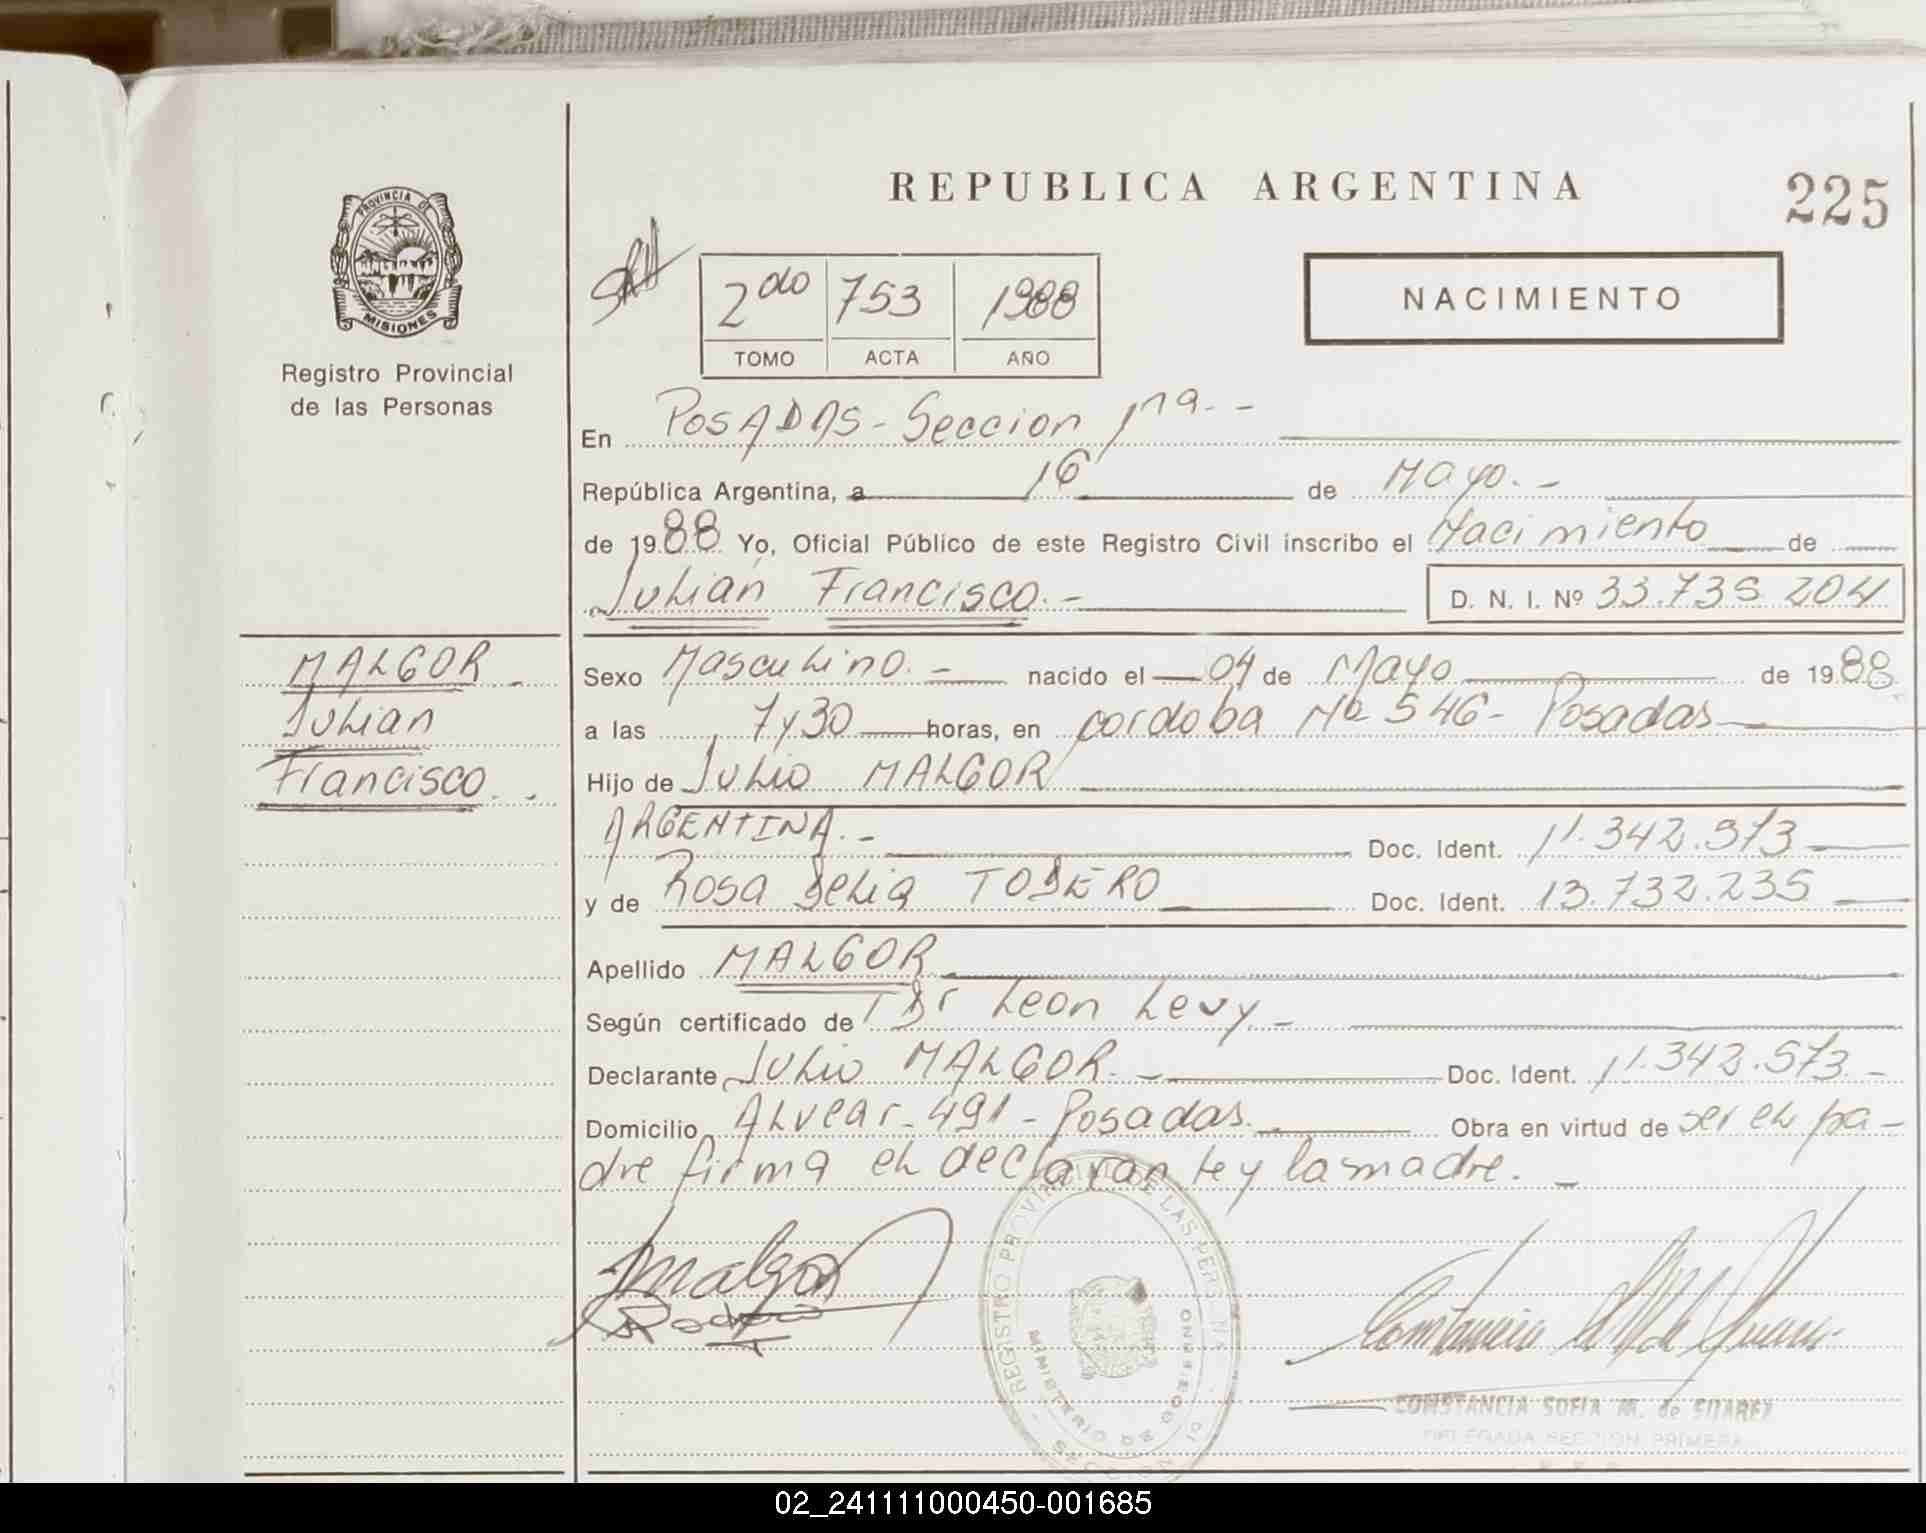 REPUBLICA ARGENTINA
225
PROVINCIA DE
MISIONES
Registro Provincial
de las Personas
2do 753 1988
TOMO ACTA AÑO
NACIMIENTO
En POSADAS - Seccion 1ra. -
República Argentina, a 16 de Mayo. -
de 1988 Yo, Oficial Público de este Registro Civil inscribo el Nacimiento de
Julian Francisco. - D. N. I. Nº 33.735 204
MALGOR
Julian
Francisco.
Sexo Masculino. - nacido el 04 de Mayo de 1988
a las 7 y 30 horas, en cordoba Nº 546 - Posadas
Hijo de Julio MALGOR
ARGENTINA. - Doc. Ident. 11.342.573
y de Rosa Delia TODERO Doc. Ident. 13.732.235
Apellido MALGOR
Según certificado de Dr Leon Levy -
Declarante Julio MALGOR. - Doc. Ident. 11.342.573 -
Domicilio ALvear - 491 - Posadas. Obra en virtud de ser el pa-
dre firma el declarante y la madre. -
Malgor
REGISTRO PROVINCIAL DE LAS PERSONAS
MINISTERIO DE GOBIERNO
CONSTANCIA SOFIA M. de SUAREZ
DELEGADA SECCION PRIMERA
02_241111000450-001685